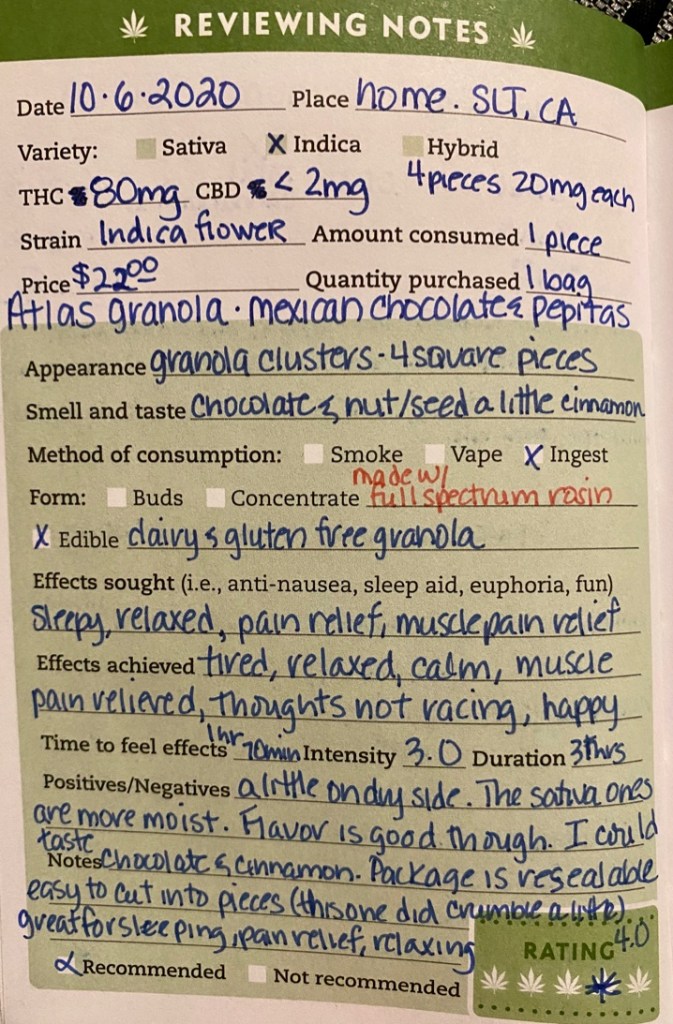 REVIEWING NOTES
Date 10·6·2020 Place home. SLT, CA
Variety: Sativa X Indica Hybrid
THC 80mg CBD < 2mg 4 pieces 20mg each
Strain Indica flower Amount consumed 1 piece
Price $22.00 Quantity purchased 1 bag
Atlas granola · mexican chocolate & pepitas
Appearance granola clusters - 4 square pieces
Smell and taste chocolate & nut/seed a little cinnamon
Method of consumption: Smoke Vape X Ingest
made w/
Form: Buds Concentrate full spectrum rosin
X Edible dairy & gluten free granola
Effects sought (i.e., anti-nausea, sleep aid, euphoria, fun)
Sleepy, relaxed, pain relief, muscle pain relief
Effects achieved tired, relaxed, calm, muscle
pain relieved, thoughts not racing, happy
Time to feel effects 1hr 10min Intensity 3.0 Duration 3+hrs
Positives/Negatives a little on dry side. The sativa ones
are more moist. Flavor is good though. I could
taste
Notes chocolate & cinnamon. Package is resealable
easy to cut into pieces (this one did crumble a little).
great for sleeping, pain relief, relaxing
RATING 4.0
X Recommended Not recommended